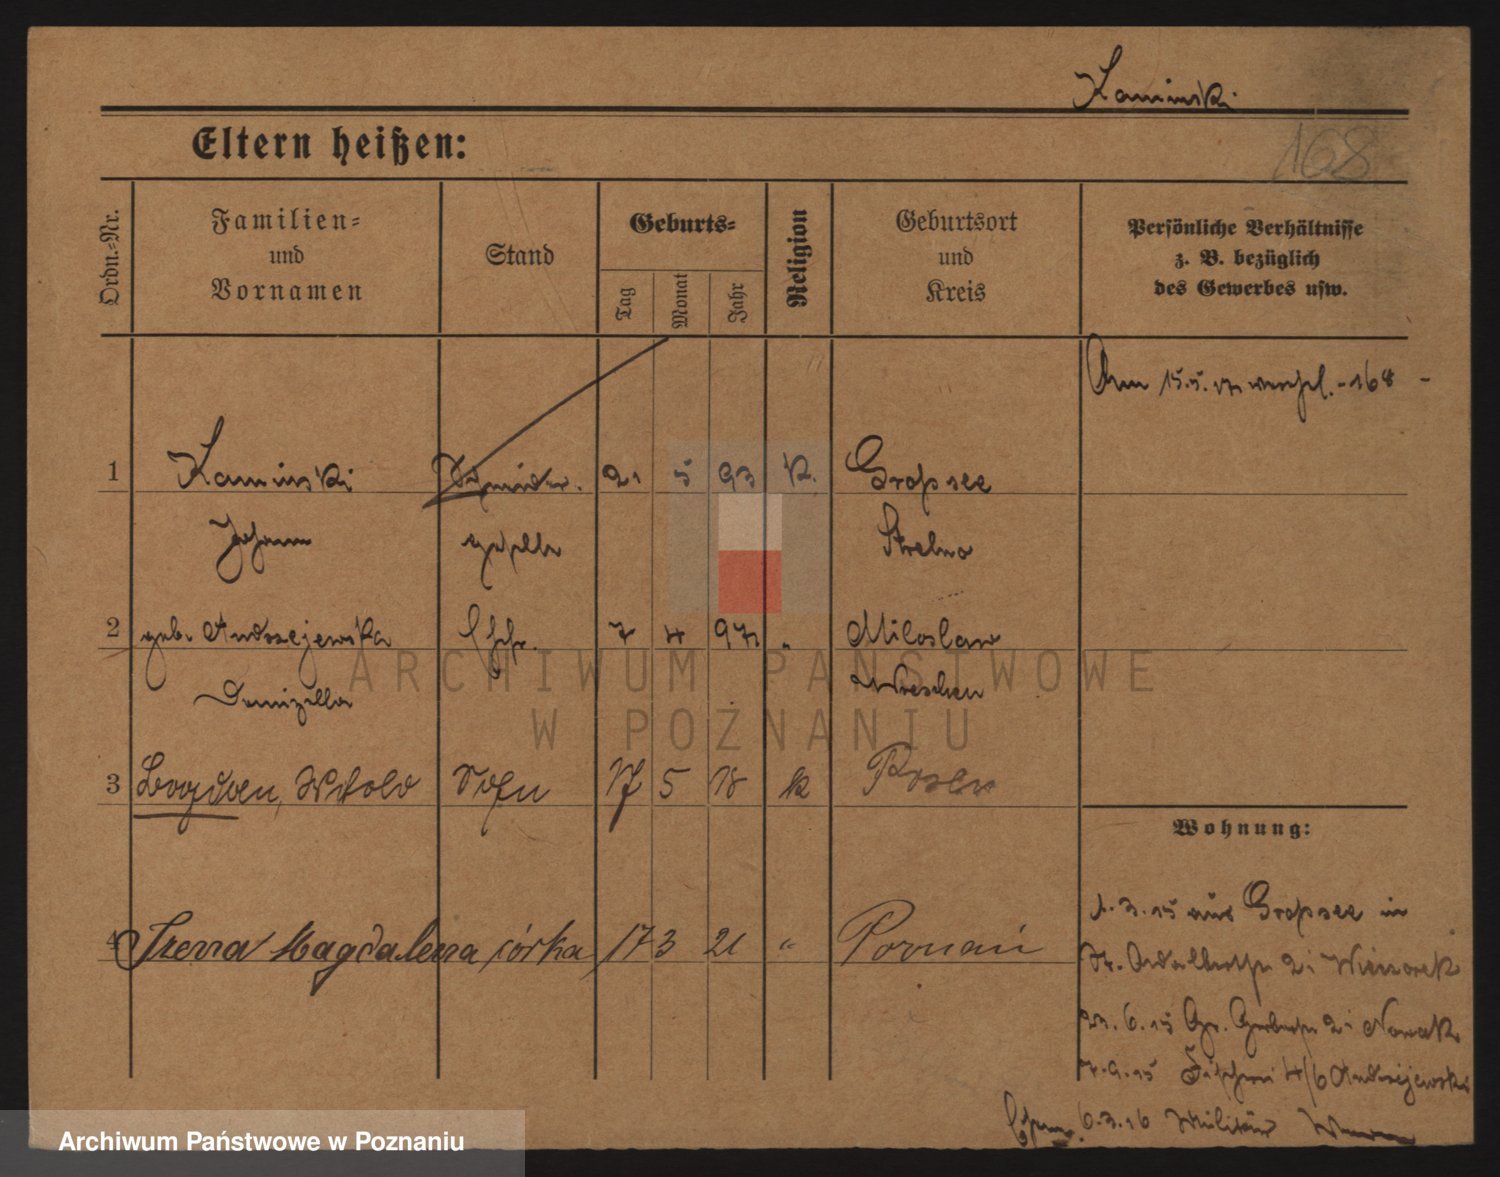 Kaminski
Eltern heißen:
168
Ordn.=Nr.
Familien=
und
Vornamen
Stand
Geburts=
Tag
Monat
Jahr
Religion
Geburtsort
und
Kreis
Persönliche Verhältnisse
z. B. bezüglich
des Gewerbes usw.
Am 15.5. 168
1 Kaminski 21 5 93 K. Großsee
Johann geselle Strelno
2 geb. Andrzejewska Ehfr. 7 4 97 " Miloslaw
Wreschen
3 Bogdan, Witold Sohn 17 5 18 k Posen
Wohnung:
1.3.15 aus Großsee in
4 Irena Magdalena córka 17 3 21 " Poznań
St. Adalbertstr 2 i Wieczorek
6.15 Gr. Gerberstr 2 i Nowak
9.15 Fischerei 4/6 Andrzejewski
6.3.16 Militär
ARCHIWUM PAŃSTWOWE
W POZNANIU
Archiwum Państwowe w Poznaniu